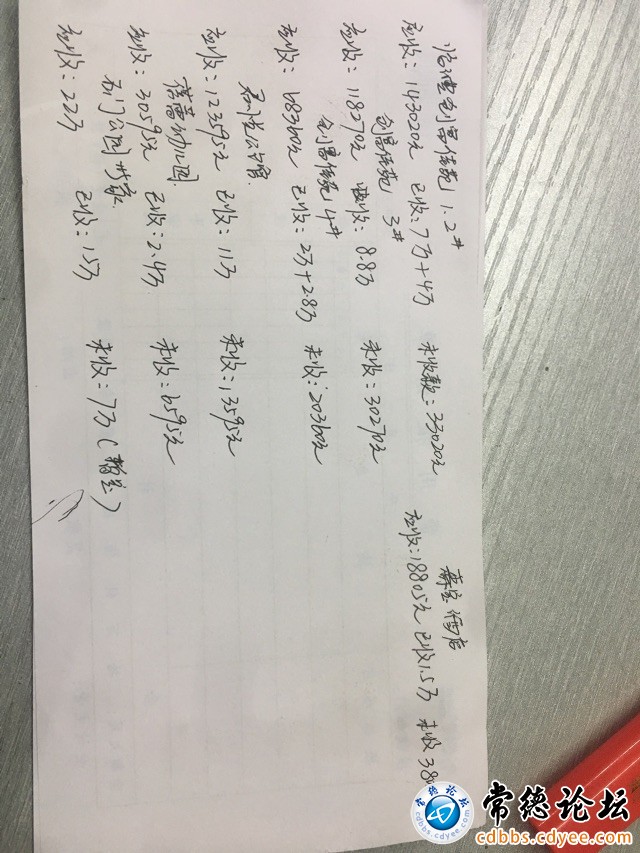 创富佳苑1.2#
应收：143020元 已收：7万+4万 未收款：33020元
创富佳苑3#
应收：118270元 收：8.8万 未收：30270元
创富佳苑4#
应收：68360元 已收：2万+2.8万 未收：20360元
应收：123595元 已收：11万 未收：13595元
蓓蕾幼儿园
应收：30595元 已收：2.4万 未收：6595元
石门公园
应收：22万 已收：15万 未收：7万（暂定）
酒店
应收：18805元 已收1.5万 未收380
常德论坛
cdbbs.cdyee.com